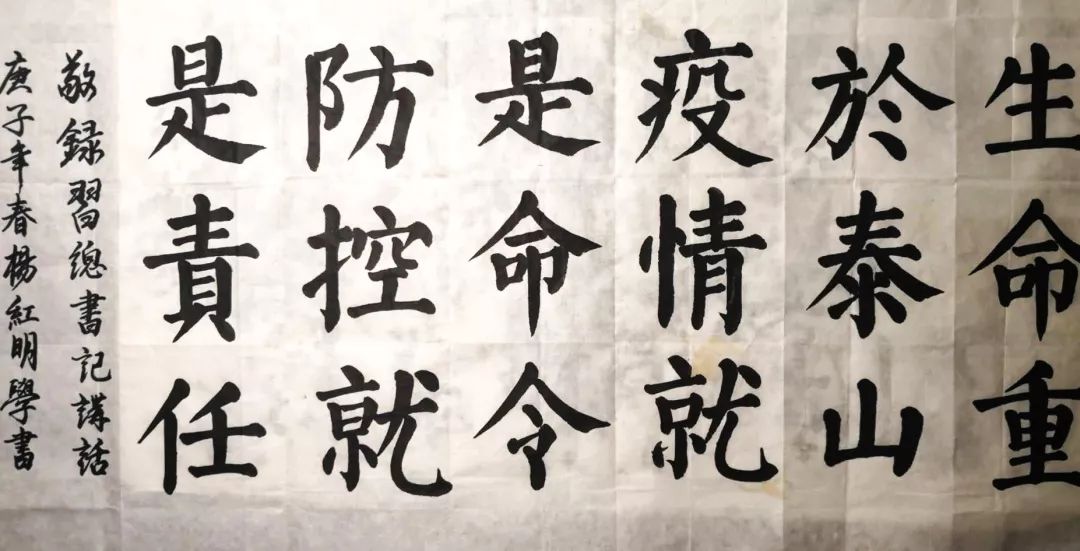 生命重
於泰山
疫情就
是命令
防控就
是責任
敬録習總書記講話
庚子年春楊紅明學書